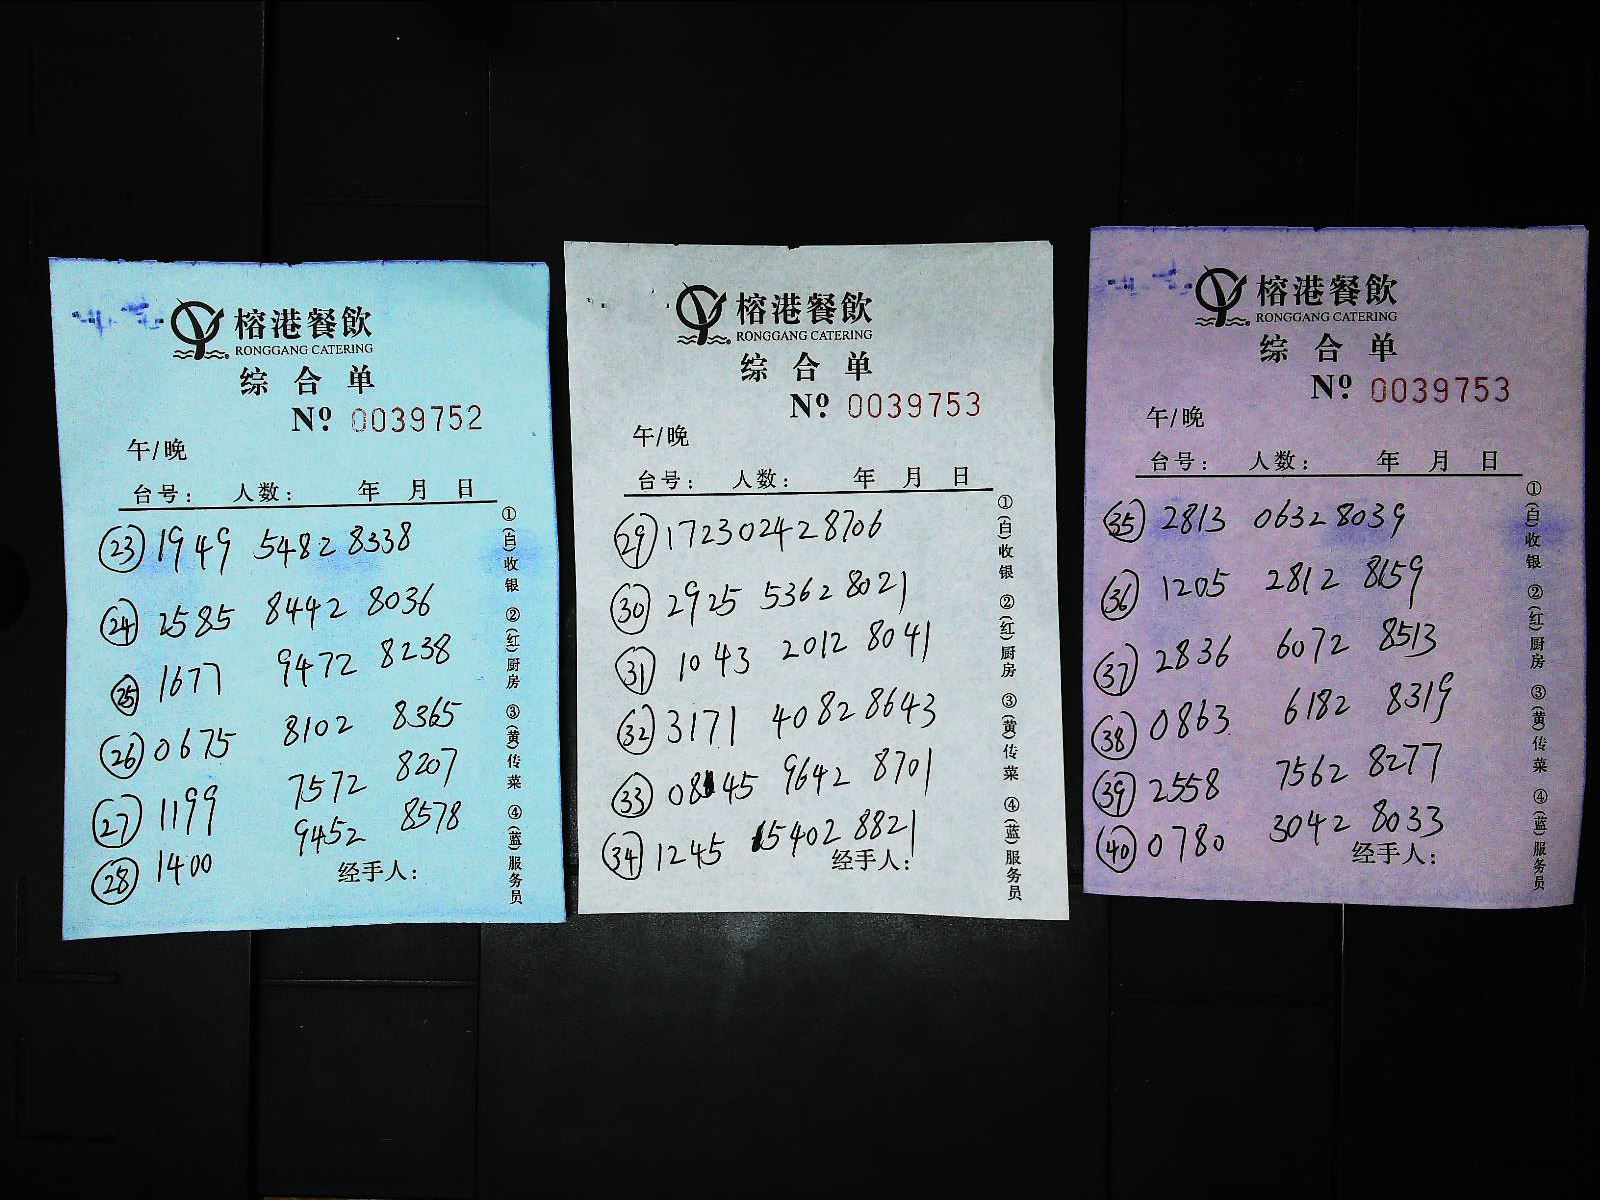 榕港餐飲
RONGGANG CATERING
综合单
Nº 0039752
午/晚
台号： 人数： 年 月 日
㉓ 1949 5482 8338
㉔ 2585 8442 8036
㉕ 1677 9472 8238
㉖ 0675 8102 8365
㉗ 1199 7572 8207
㉘ 1400 9452 8578
经手人：
①(白)收银 ②(红)厨房 ③(黄)传菜 ④(蓝)服务员
榕港餐飲
RONGGANG CATERING
综合单
Nº 0039753
午/晚
台号： 人数： 年 月 日
㉙ 1723 0242 8706
㉚ 2925 5362 8021
㉛ 1043 2012 8041
㉜ 3171 4082 8643
㉝ 0845 9642 8701
㉞ 1245 5402 8821
经手人：
①(白)收银 ②(红)厨房 ③(黄)传菜 ④(蓝)服务员
榕港餐飲
RONGGANG CATERING
综合单
Nº 0039753
午/晚
台号： 人数： 年 月 日
㉟ 2813 0632 8039
㊱ 1205 2812 8159
㊲ 2836 6072 8513
㊳ 0863 6182 8319
㊴ 2558 7562 8277
㊵ 0780 3042 8033
经手人：
①(白)收银 ②(红)厨房 ③(黄)传菜 ④(蓝)服务员